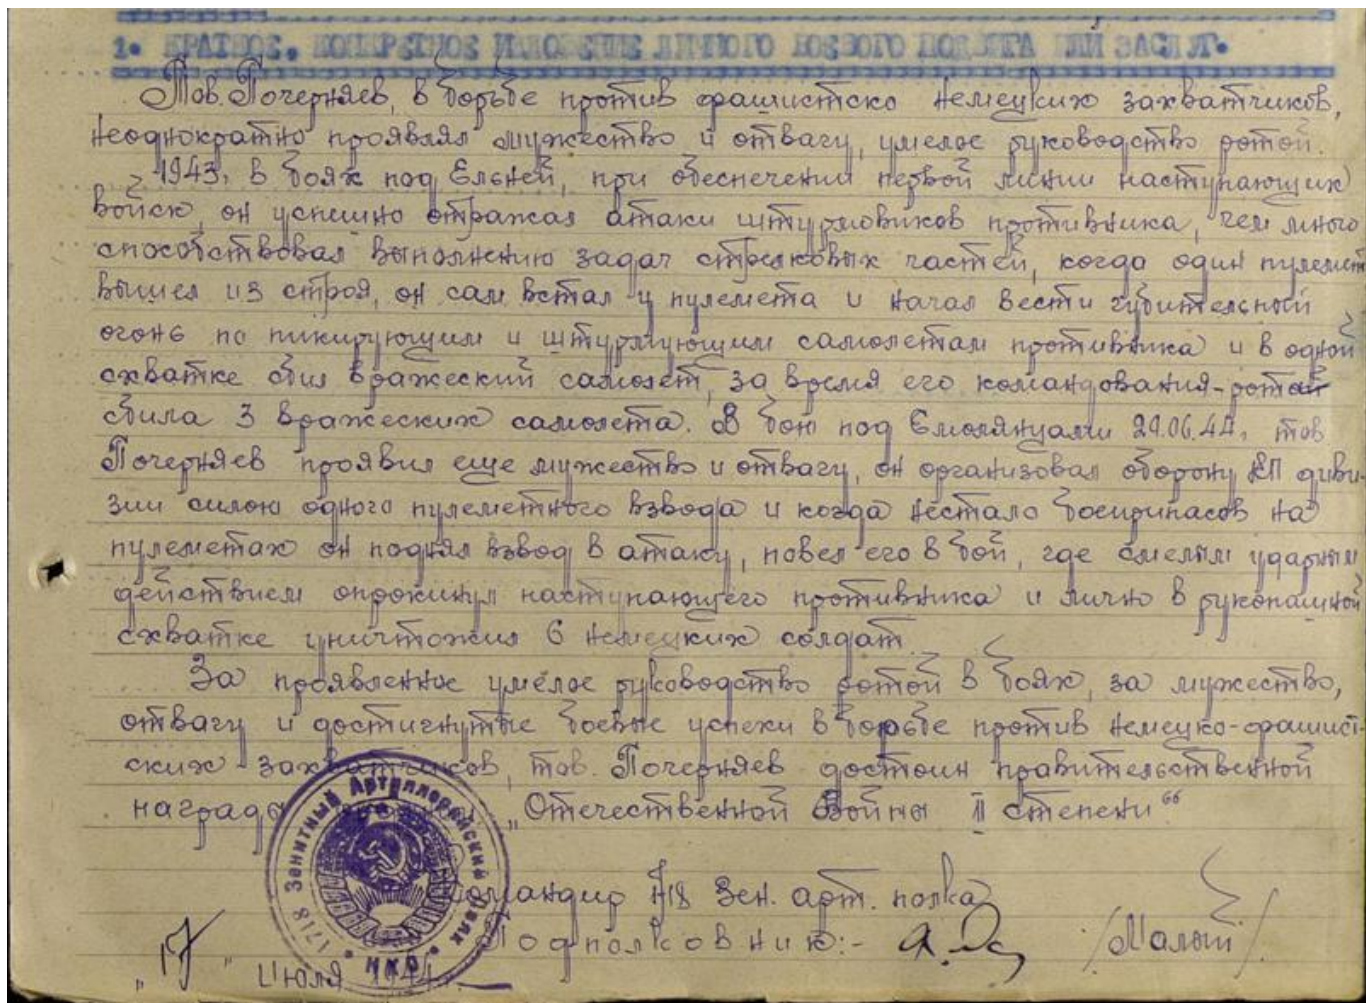 1. КРАТКОЕ, КОНКРЕТНОЕ ИЗЛОЖЕНИЕ ЛИЧНОГО БОЕВОГО ПОДВИГА ИЛИ ЗАСЛУГ.
Тов. Почерняев, в борьбе против фашистско немецких захватчиков,
неоднократно проявлял мужество и отвагу, умелое руководство ротой.
1943г. в боях под Ельней, при обеспечении первой линии наступающих
войск, он успешно отражал атаки штурмовиков противника, чем много
способствовал выполнению задач стрелковых частей, когда один пулемет
вышел из строя, он сам встал у пулемета и начал вести губительный
огонь по пикирующим и штурмующим самолетам противника и в одной
схватке сбил вражеский самолет, за время его командования-ротой
сбила 3 вражеских самолета. В бою под Смолянцами 29.06.44г. тов
Почерняев проявил еще мужество и отвагу, он организовал оборону КП диви-
зии силою одного пулеметного взвода и когда нестало боеприпасов на
пулеметах он поднял взвод в атаку, повел его в бой, где смелым ударным
действием опрокинул наступающего противника и лично в рукопашной
схватке уничтожил 6 немецких солдат.
За проявленное умелое руководство ротой в боях, за мужество,
отвагу и достигнутые боевые успехи в борьбе против немецко-фашист-
ских захватчиков, тов. Почерняев достоин правительственной
награды „Отечественной Войны II степени“
Командир 1718 Зен. арт. полка
Подполковник:- /Малый/
„17“ Июля 1944
1718 Зенитный Артиллерийский полк • НКО •